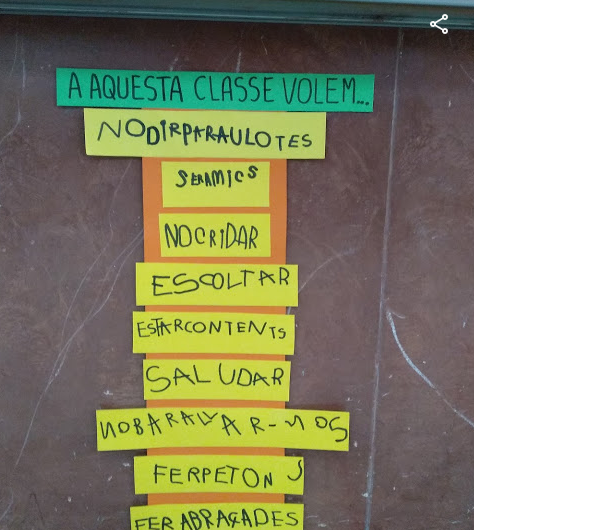 A AQUESTA CLASSE VOLEM...
NODIRPARAULOTES
SERAMICS
NOCRIDAR
ESCOLTAR
ESTARCONTENTS
SALUDAR
NOBARALLAR-NOS
FERPETONS
FER ABRAÇADES